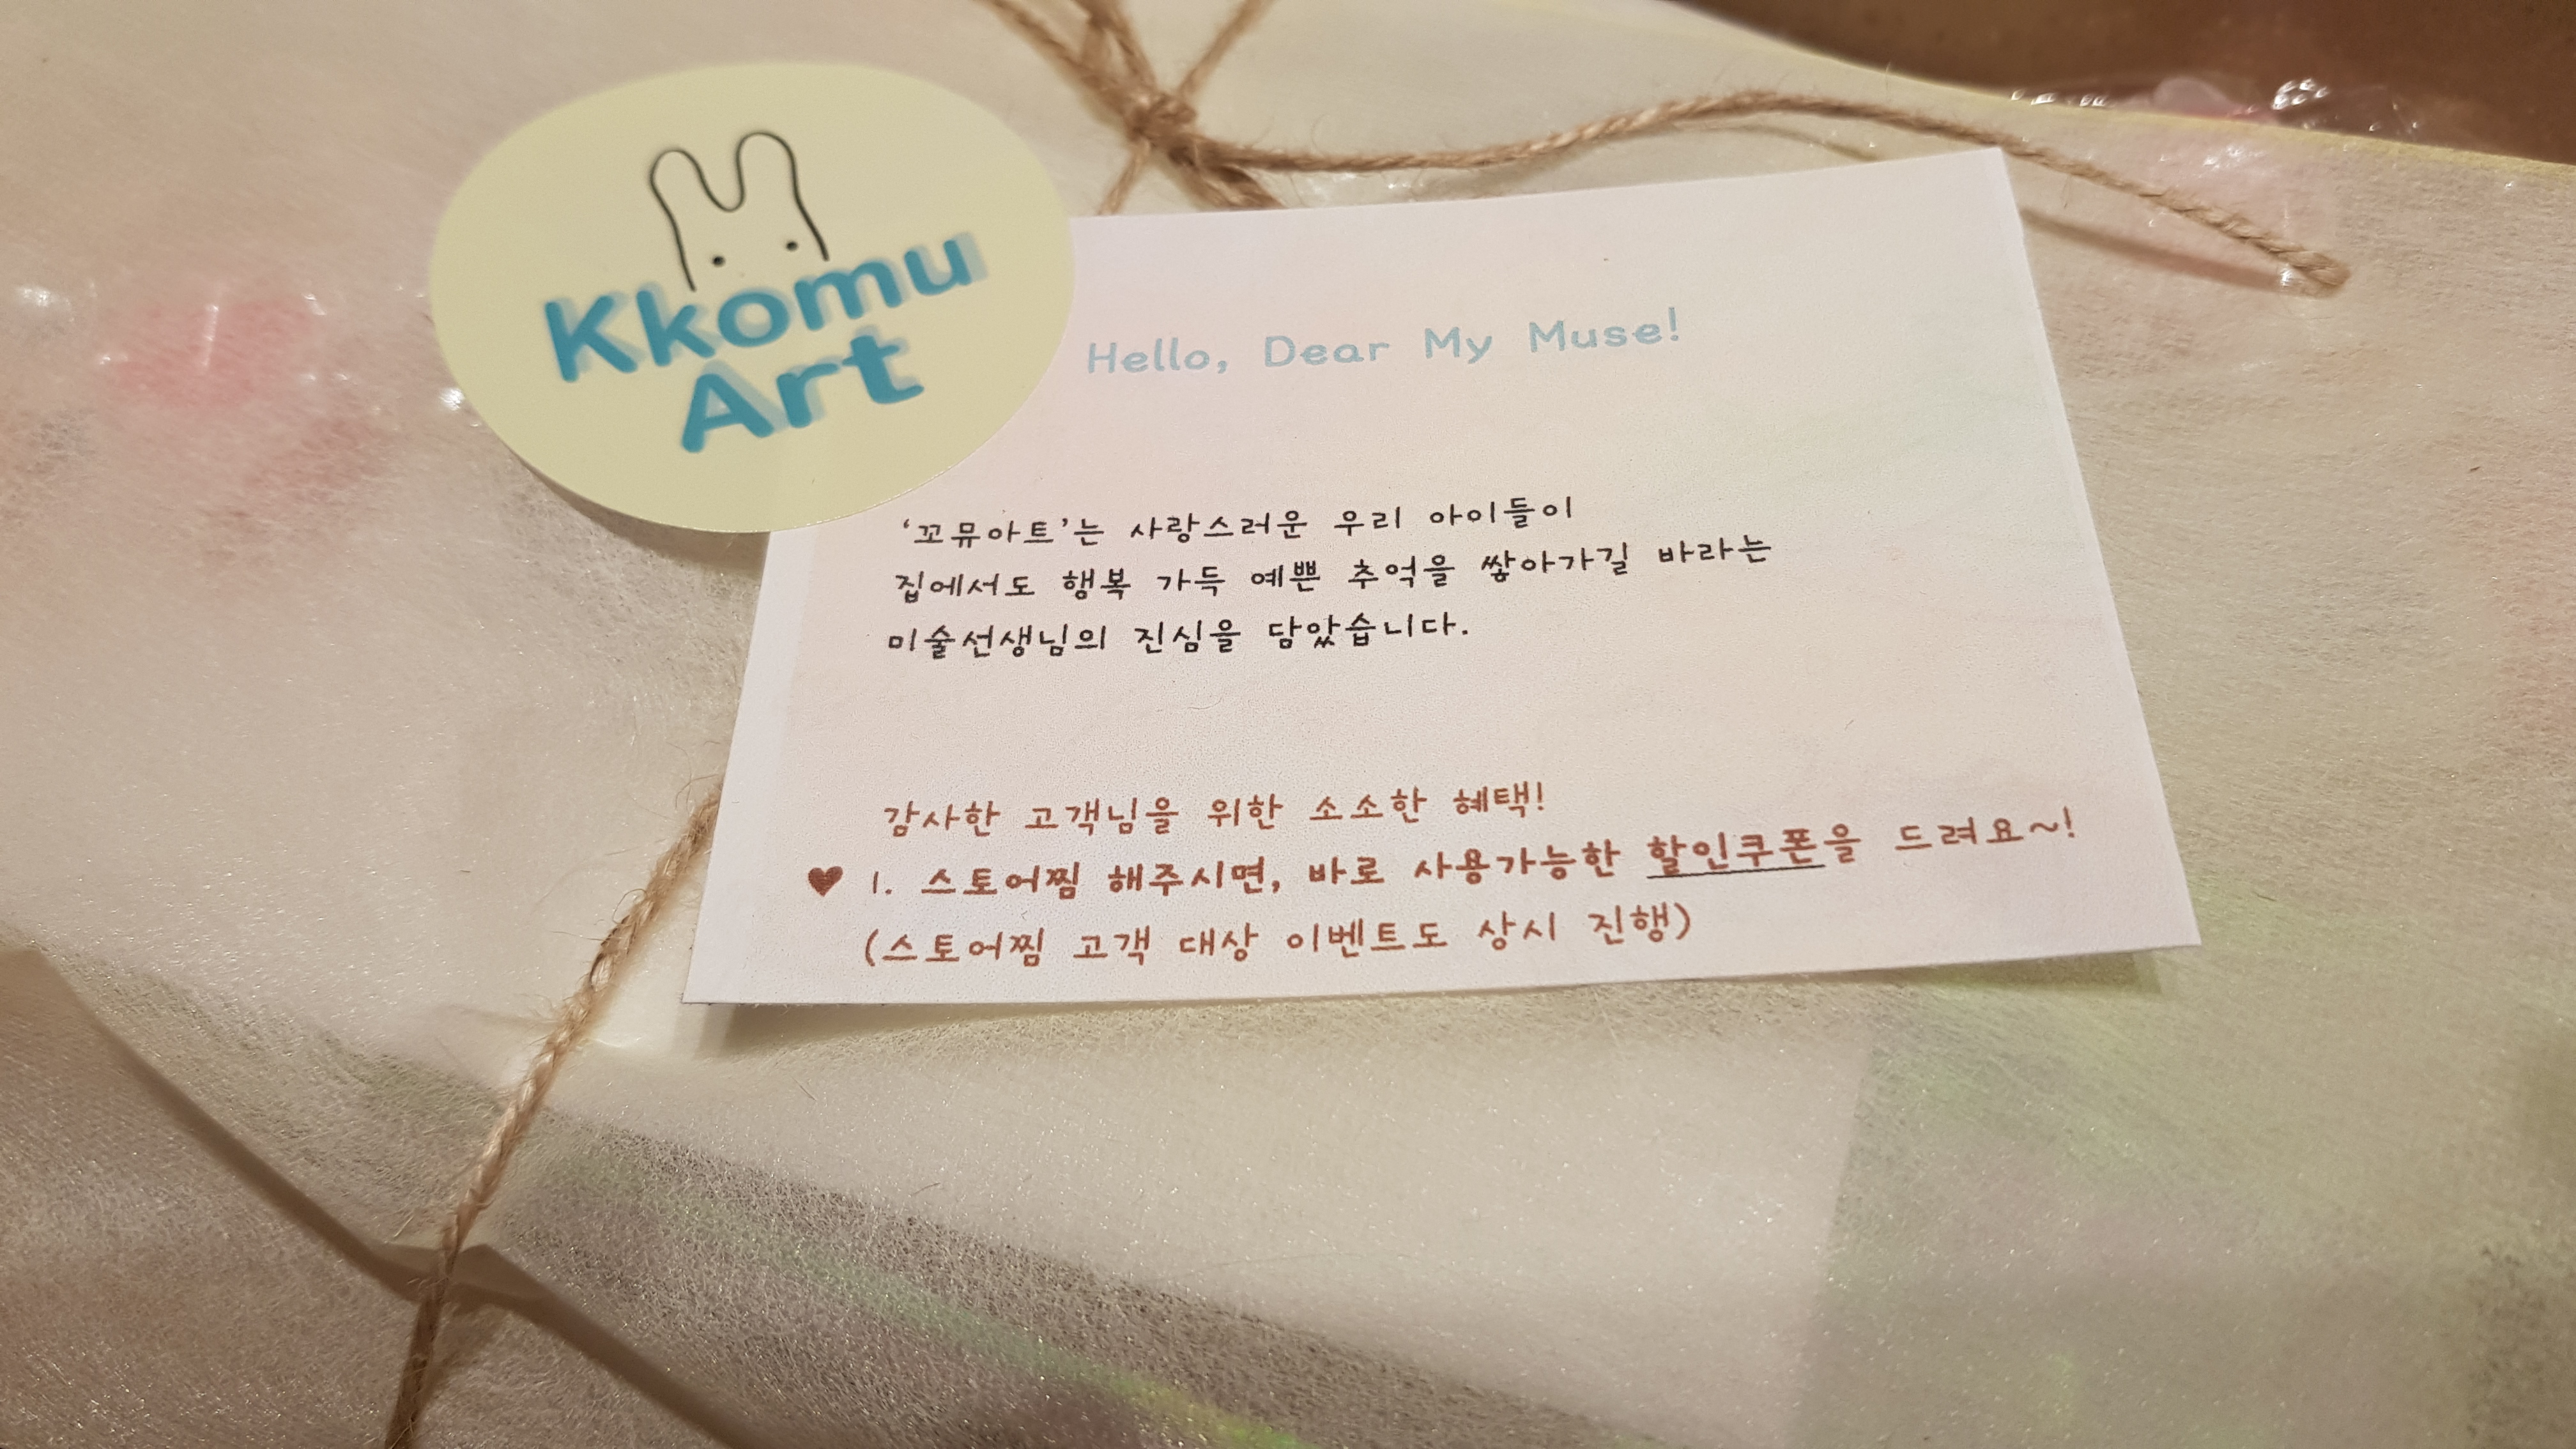 Kkomu
Art
Hello, Dear My Muse!
‘꼬뮤아트’는 사랑스러운 우리 아이들이
집에서도 행복 가득 예쁜 추억을 쌓아가길 바라는
미술선생님의 진심을 담았습니다.
감사한 고객님을 위한 소소한 혜택!
♥ 1. 스토어찜 해주시면, 바로 사용가능한 할인쿠폰을 드려요~!
(스토어찜 고객 대상 이벤트도 상시 진행)